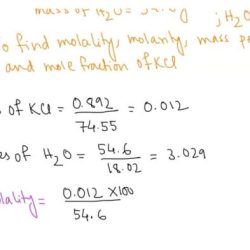 mass of H₂O = 54.6g
to find molality, molarity, mass pe
and mole fraction of KCl
s of KCl = 0.892 / 74.55 = 0.012
es of H₂O = 54.6 / 18.02 = 3.029
lality = 0.012 × 100 / 54.6